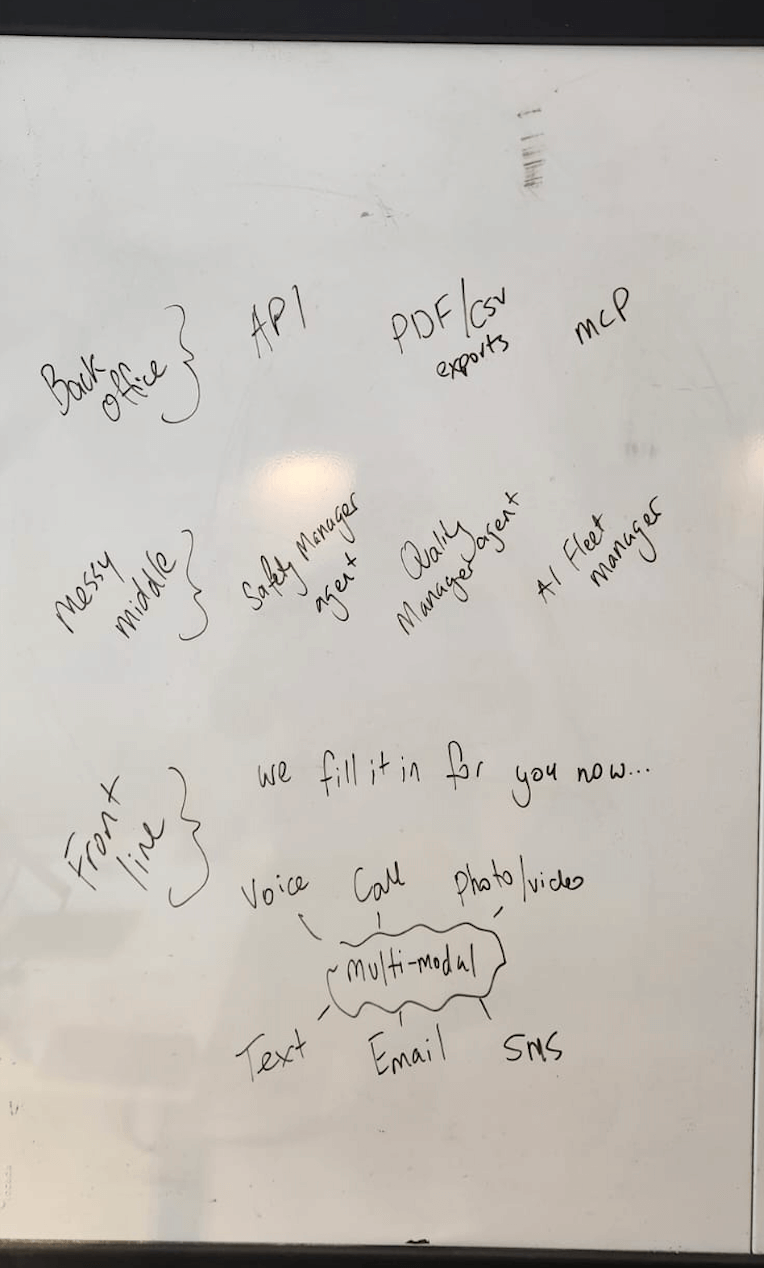 Back
office
API
PDF/CSV
exports
MCP
Messy
middle
Safety Manager
agent
Quality
Manager agent
AI Fleet
manager
Front
line
we fill it in for you now...
Voice
Call
Photo/video
Multi-modal
Text
Email
SMS